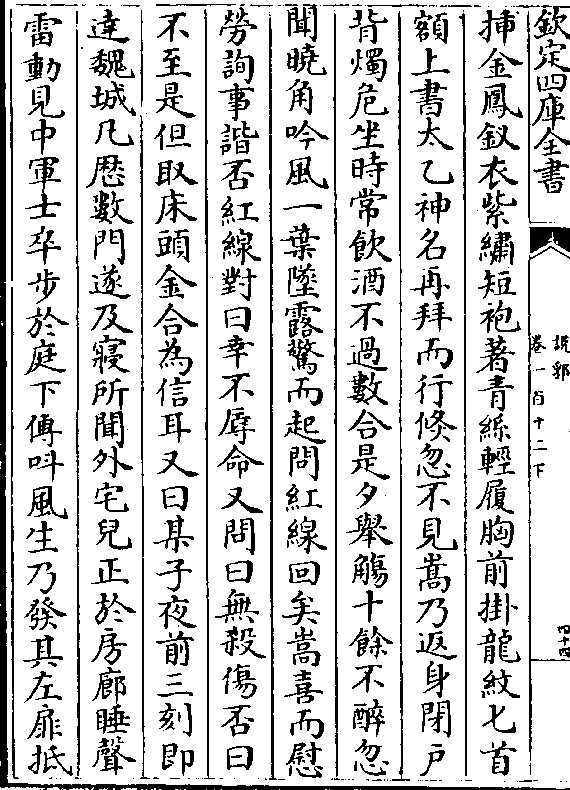 欽定四庫全書
說郛
卷一百十二下
四十四
揷金鳳釵衣紫繡短袍著青絲輕履胸前掛龍紋匕首
額上書太乙神名再拜而行倐忽不見嵩乃返身閉户
背燭危坐時常飲酒不過數合是夕舉觴十餘不醉忽
聞曉角吟風一葉墜露驚而起問紅線回矣嵩喜而慰
勞詢事諧否紅線對曰幸不辱命又問曰無殺傷否曰
不至是但取床頭金合為信耳又曰某子夜前三刻即
達魏城凡歴數門遂及寢所聞外宅兒正於房廊睡聲
雷動見中軍士卒步於庭下傳呌風生乃發其左扉抵